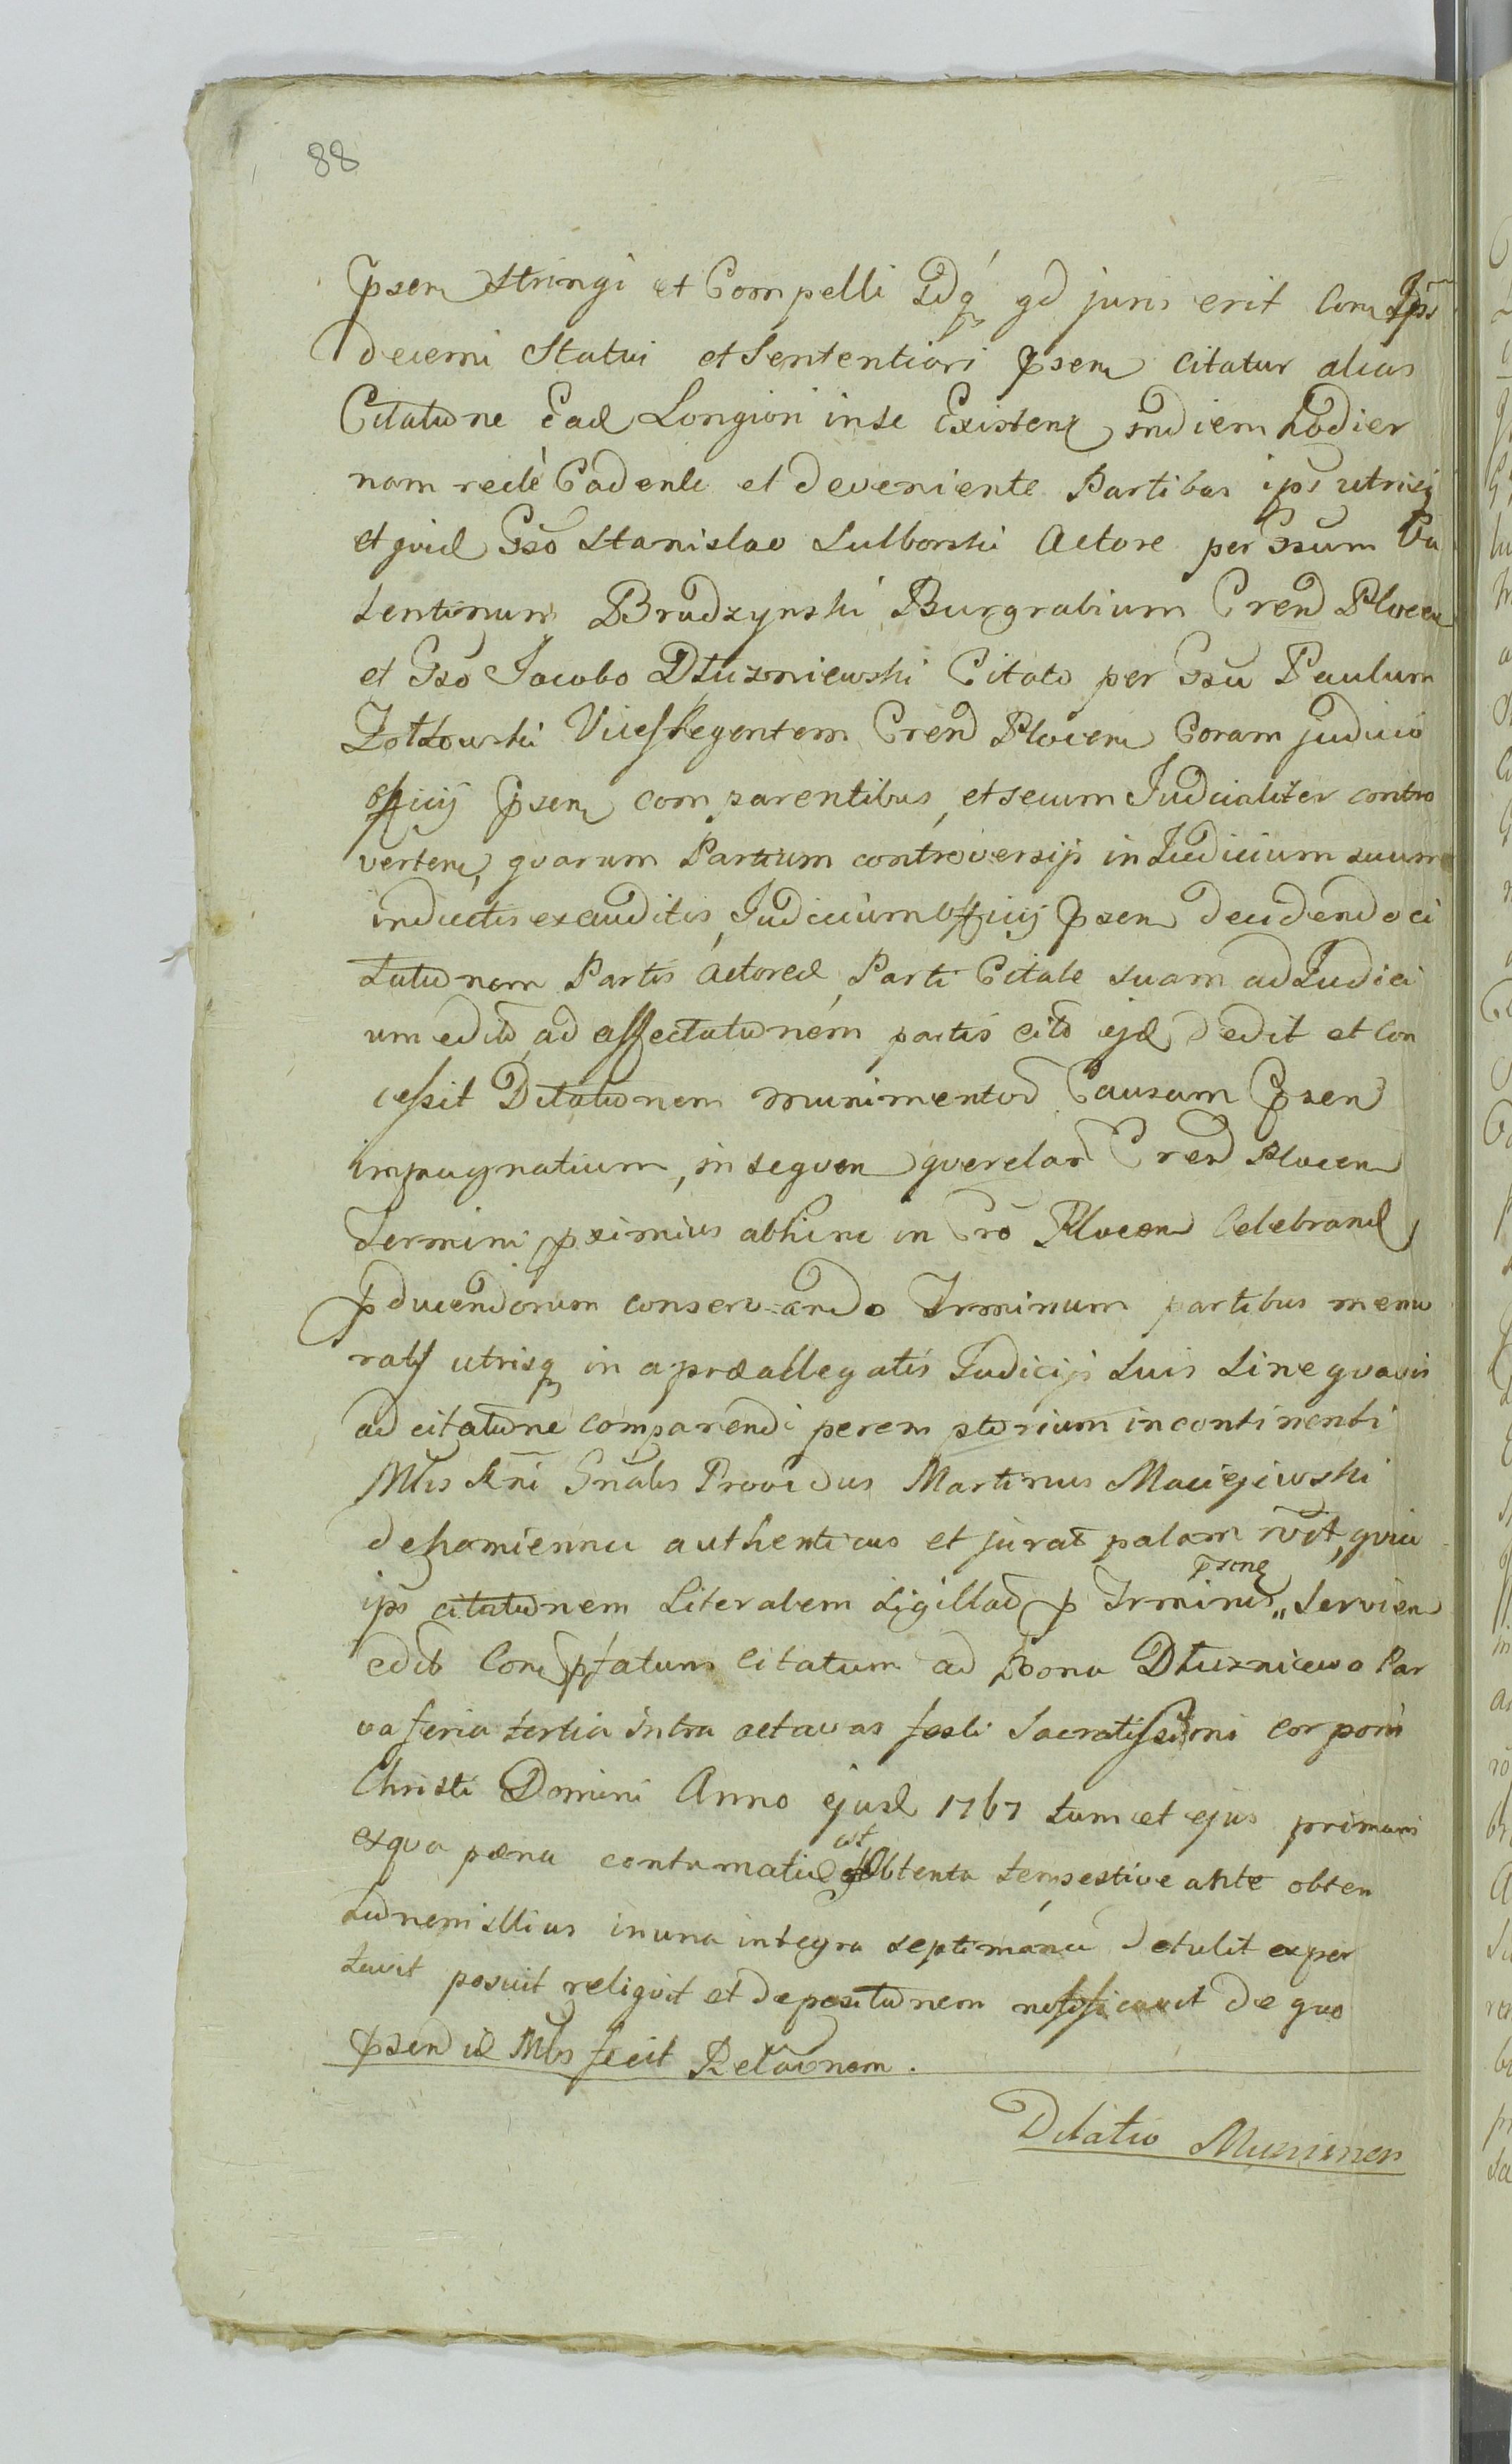 88
Pnsem stringi et Compelli Idq gd juris erit Cone Ips
decerni Statui et Sententiari pnsem citatur alias
Citatione Ead Longiori in se Existen in diem hodier
nam recte Cadente et deveniente Partibus ips utrisq
et quid Gso Stanislao Sulborski Actore per Gsum Va
lentinum Brudzynski Burgrabium Crend Plocen
et Gso Jacobo Dłuzniewski Citato per Gsu Paulum
Zołtowski Vices Regentem Crend Plocen Coram judicio
officij pnsen comparentibus, et secum Judicialiter contro
verten, quarum Partium controversijs in Judicium suum
inductis exauditis, Judicium officij pnsen decidendo ci
tationem Partis Actored, Parti Citate suam ad Judici
um edito, ad affectationem partis cito ejd dedit et Con
cessit Dilationem munimentor Causam pnsen
impugnatium, in sequen querelar Crend Plocen
Termini pximius abhinc in Cro Plocen Celebrand
pducendorum conservando Trminum partibus memo
ratis utrisq in apraeallegatis Judicijs Suis Sine quavis
ad citatione comparendi peremptorium incontinenti
Mtis Rni Gnalis Providus Martinus Maciejewski
de hamiennu authenticus et jurat palam rodt, quia
ips citationem Literalem Sigillat p Trminus „ Servien
psene
edit Cone pfatum Citatum ad Bona Dłuzniewo Par
va feria tertia intra octavas festi Sacratissimi Corporis
Christi Domini Anno ejusd 1767 tum et ejus primam
ex qua paena contumatiae est obtenta tempestive ante obten
tionem illius in una integra septimana detulit exper
tavit posuit reliquit et depositionem notificavit de quo
pnsen id Mtis fecit Relaonem.
Dilatio Munimen